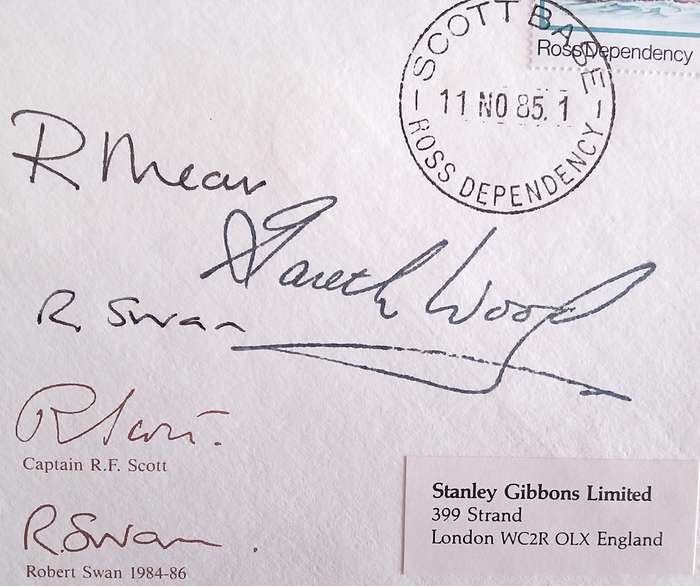 Ross Dependency
SCOTT BASE
11 NO 85.1
ROSS DEPENDENCY
R Mear
Gareth Wood
R. Swan
RScott.
Captain R.F. Scott
R.Swan
Robert Swan 1984-86
Stanley Gibbons Limited
399 Strand
London WC2R OLX England